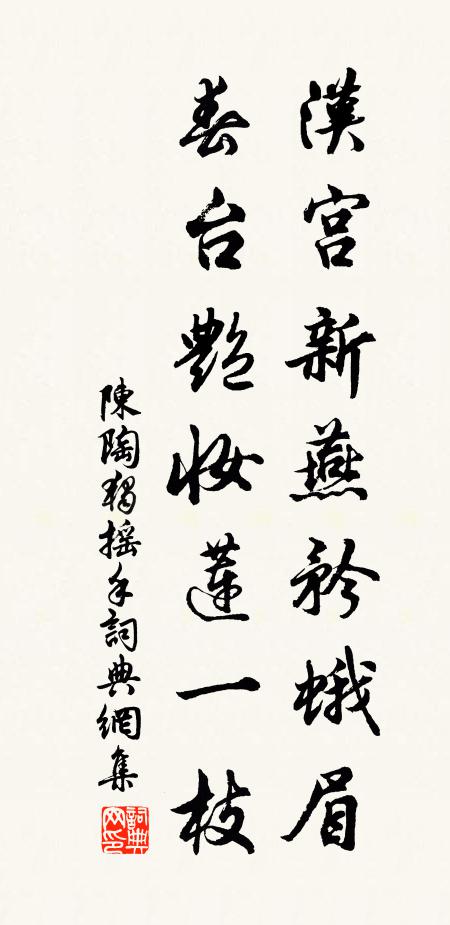 漢宮新燕矜蛾眉
春台艷妝蓮一枝
陳陶獨搖手詞典網集
詞典網印